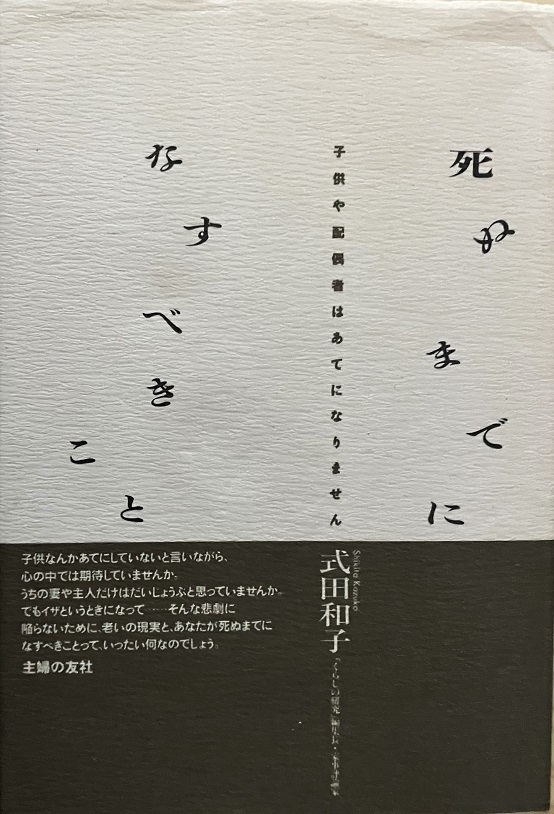 死ぬまでに
なすべきこと
子供や配偶者はあてになりません
式田和子
Shikita Kazuko
子供なんかあてにしていないと言いながら、
心の中では期待していませんか。
うちの妻や主人だけはだいじょうぶと思っていませんか。
でもイザというときになって……そんな悲劇に
陥らないために、老いの現実と、あなたが死ぬまでに
なすべきことって、いったい何なのでしょう。
主婦の友社